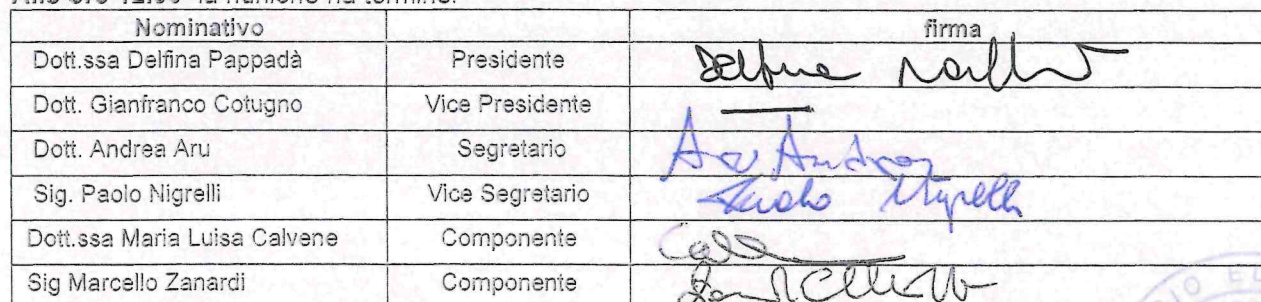 Nominativo firma
Dott.ssa Delfina Pappadà Presidente Delfina
Dott. Gianfranco Cotugno Vice Presidente
Dott. Andrea Aru Segretario Aru Andrea
Sig. Paolo Nigrelli Vice Segretario Paolo Nigrelli
Dott.ssa Maria Luisa Calvene Componente
Sig Marcello Zanardi Componente